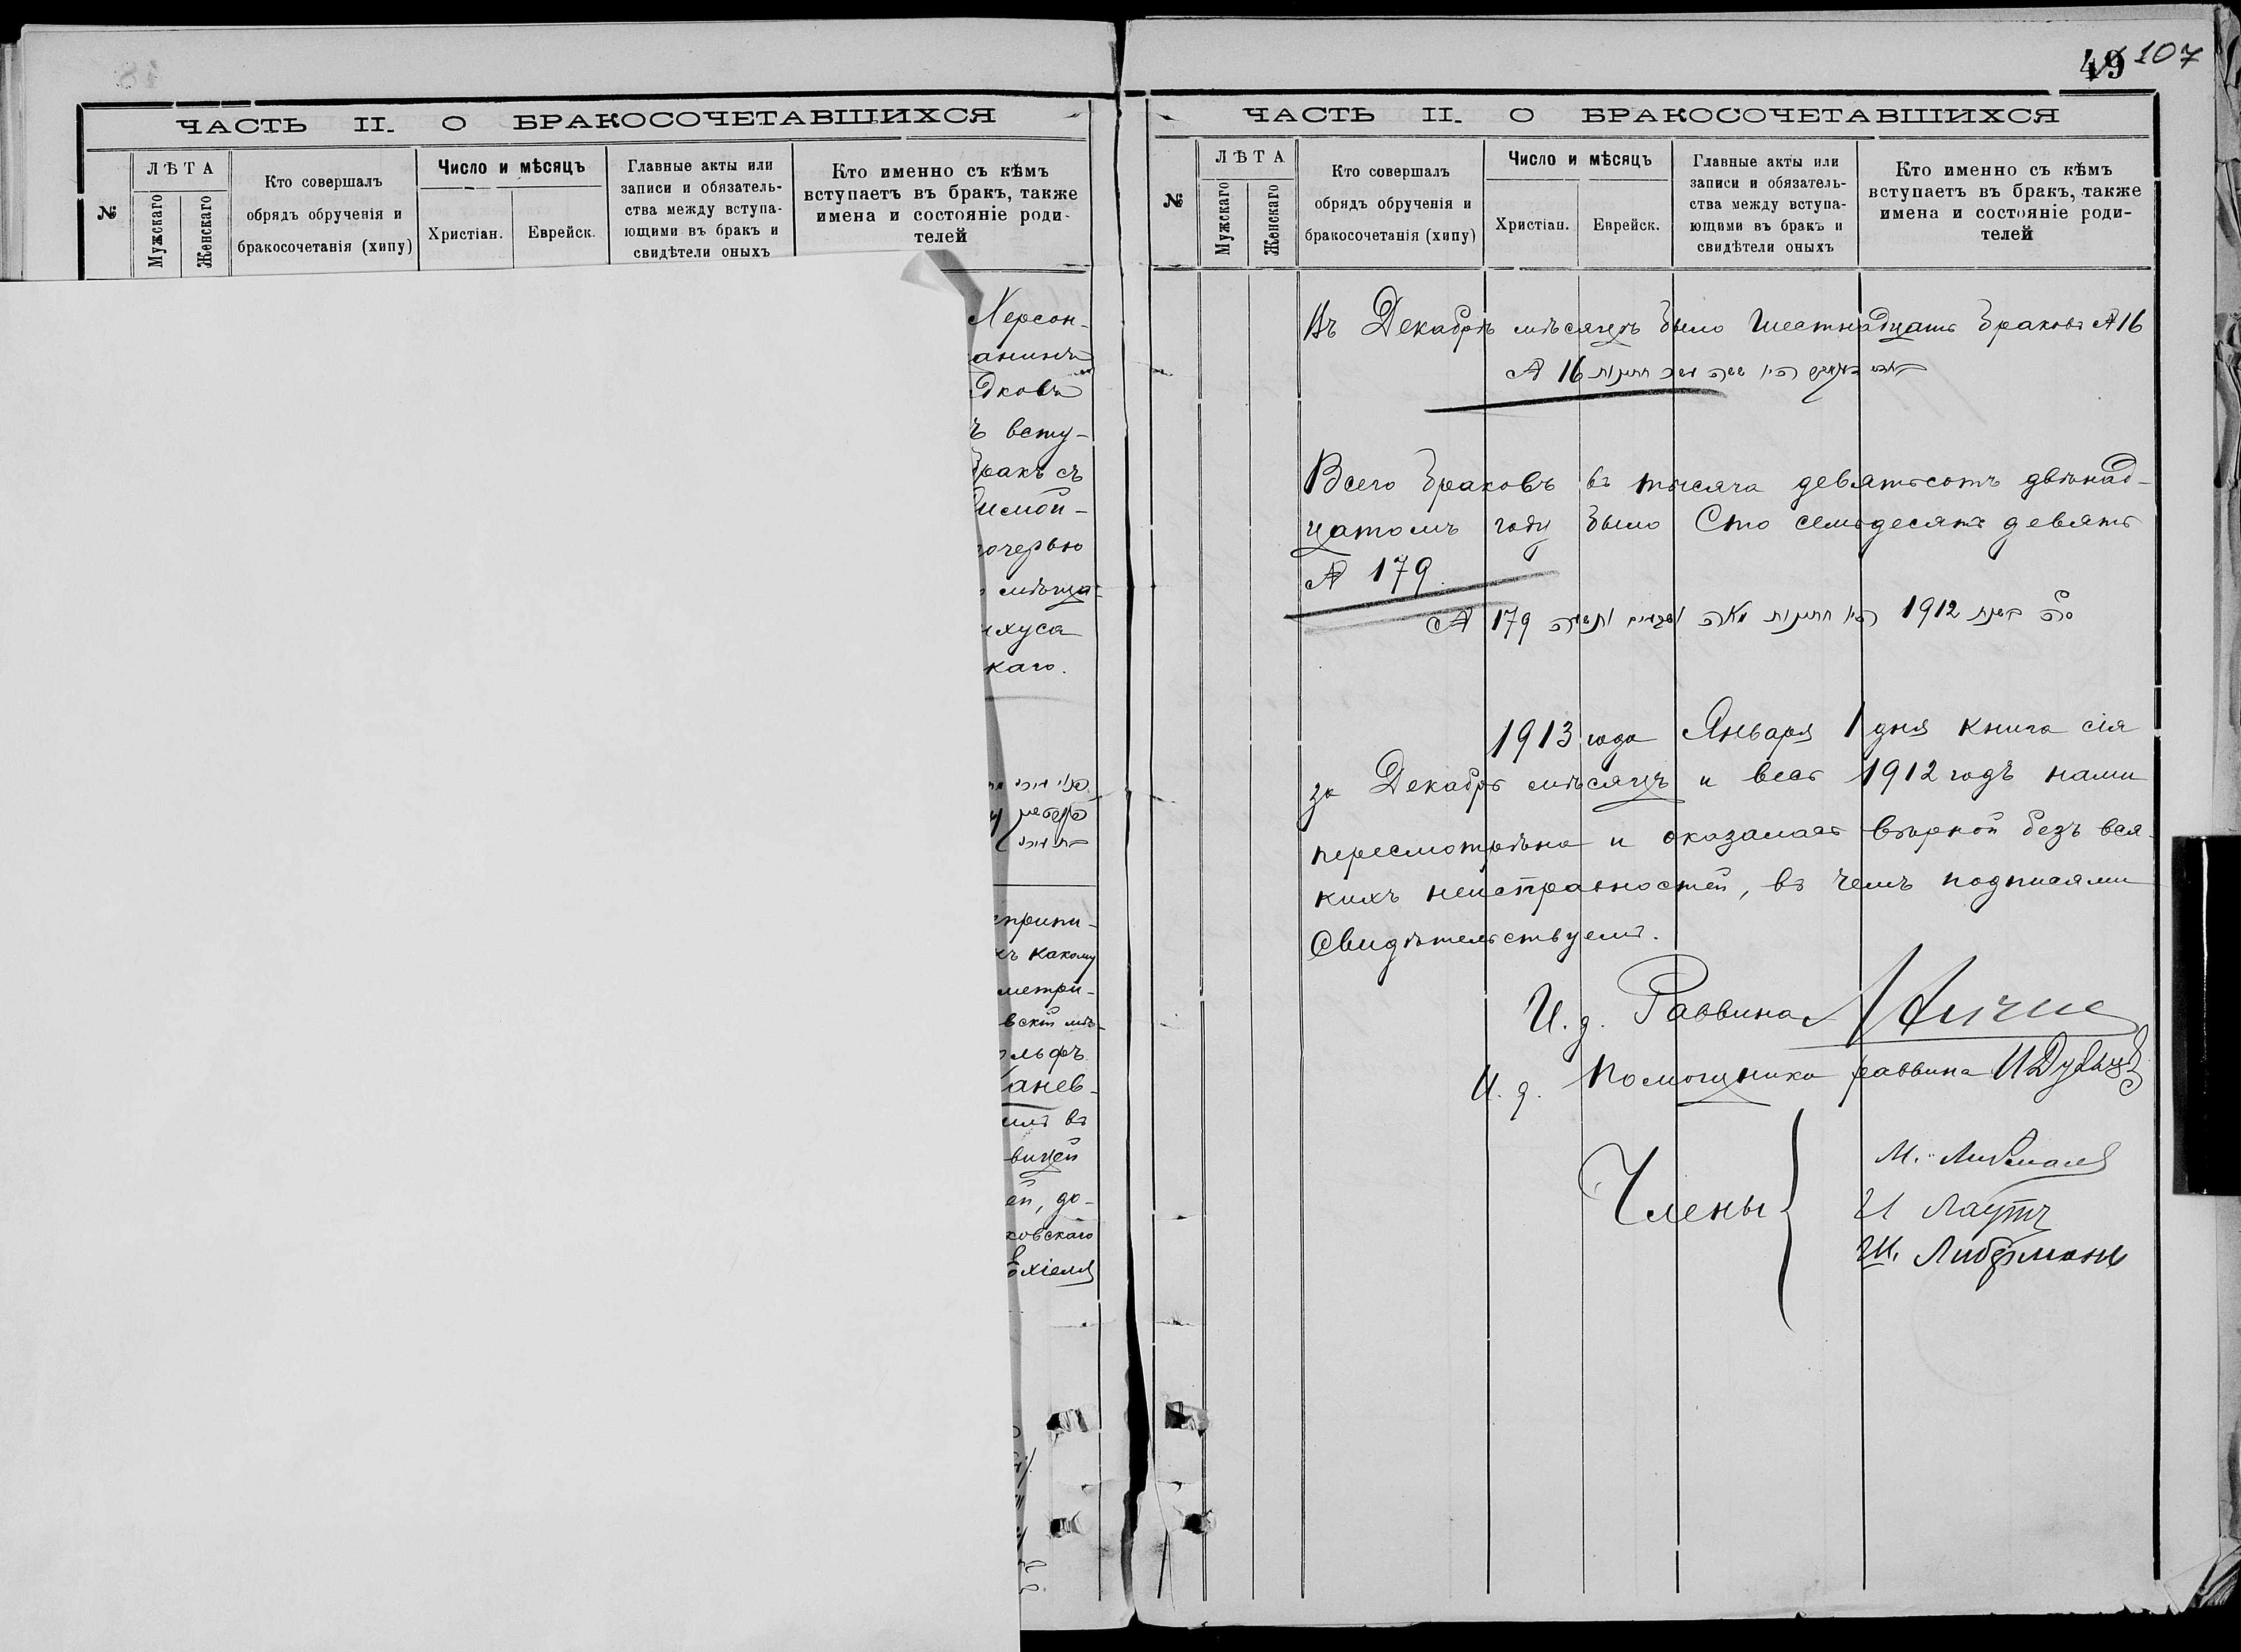 ЧАСТЬ II. О БРАКОСОЧЕТАВШИХСЯ
№
ЛѢТА
Мужскаго
Женскаго
Кто совершалъ
обрядъ обрученія и
бракосочетанія (хипу)
Число и мѣсяцъ
Христіан.
Еврейск.
Главные акты или
записи и обязатель-
ства между вступа-
ющими въ бракъ и
свидѣтели оныхъ
Кто именно съ кѣмъ
вступаетъ въ бракъ, также
имена и состояніе роди-
телей
Херсон-
анинъ
дковъ
ъ всту-
бракъ съ
очерью
мѣща-
хуса
каго.
припи-
къ какому
метри-
вскій мѣ-
ольфъ
анев-
илъ въ
вицей
ей, до-
ковскаго
охіеля
49 107
ЧАСТЬ II. О БРАКОСОЧЕТАВШИХСЯ
№
ЛѢТА
Мужскаго
Женскаго
Кто совершалъ
обрядъ обрученія и
бракосочетанія (хипу)
Число и мѣсяцъ
Христіан.
Еврейск.
Главные акты или
записи и обязатель-
ства между вступа-
ющими въ бракъ и
свидѣтели оныхъ
Кто именно съ кѣмъ
вступаетъ въ бракъ, также
имена и состояніе роди-
телей
Въ Декабрѣ мѣсяцѣ было Шестнадцать браковъ № 16
№ 16 חתונות היו
Всего браковъ въ тысяча девятьсотъ двѣнад-
цатомъ году было Сто семьдесятъ девять
№ 179
№ 179 מאה חתונות היו 1912 בשנת
1913 года Января 1 дня книга сія
за Декабрь мѣсяцъ и весь 1912 годъ нами
пересмотрѣна и оказалась вѣрной безъ вся-
кихъ неисправностей, въ чемъ подписями
Свидѣтельствуемъ.
И. д. Раввина
И. д. Помощника раввина
Члены
М. Либманъ
И Лаутъ
Ш. Либерманъ